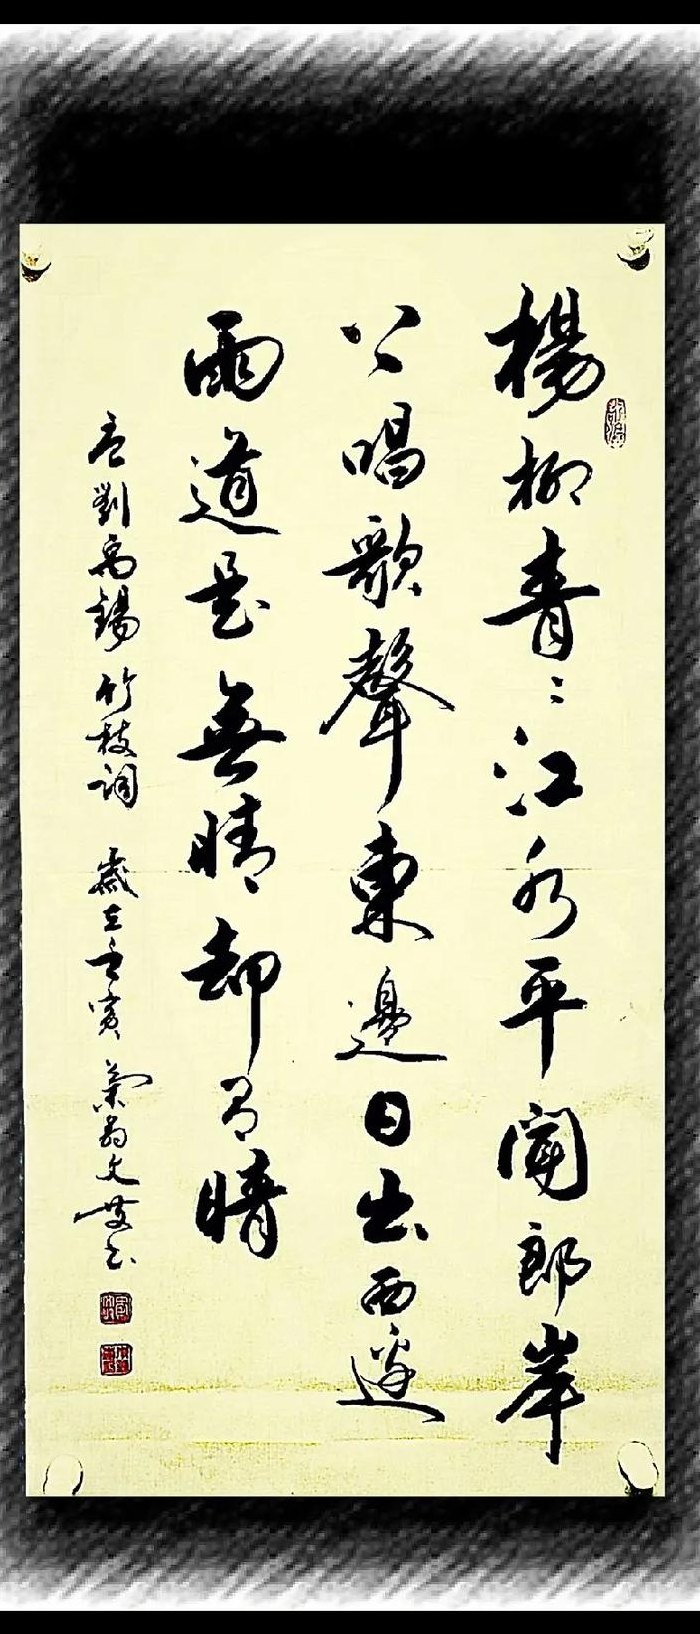 楊柳青〻江水平聞郎岸
上唱歌聲東邊日出西邊
雨道是無晴却有晴
唐劉禹錫竹枝詞 歲在壬寅 菊翁文书